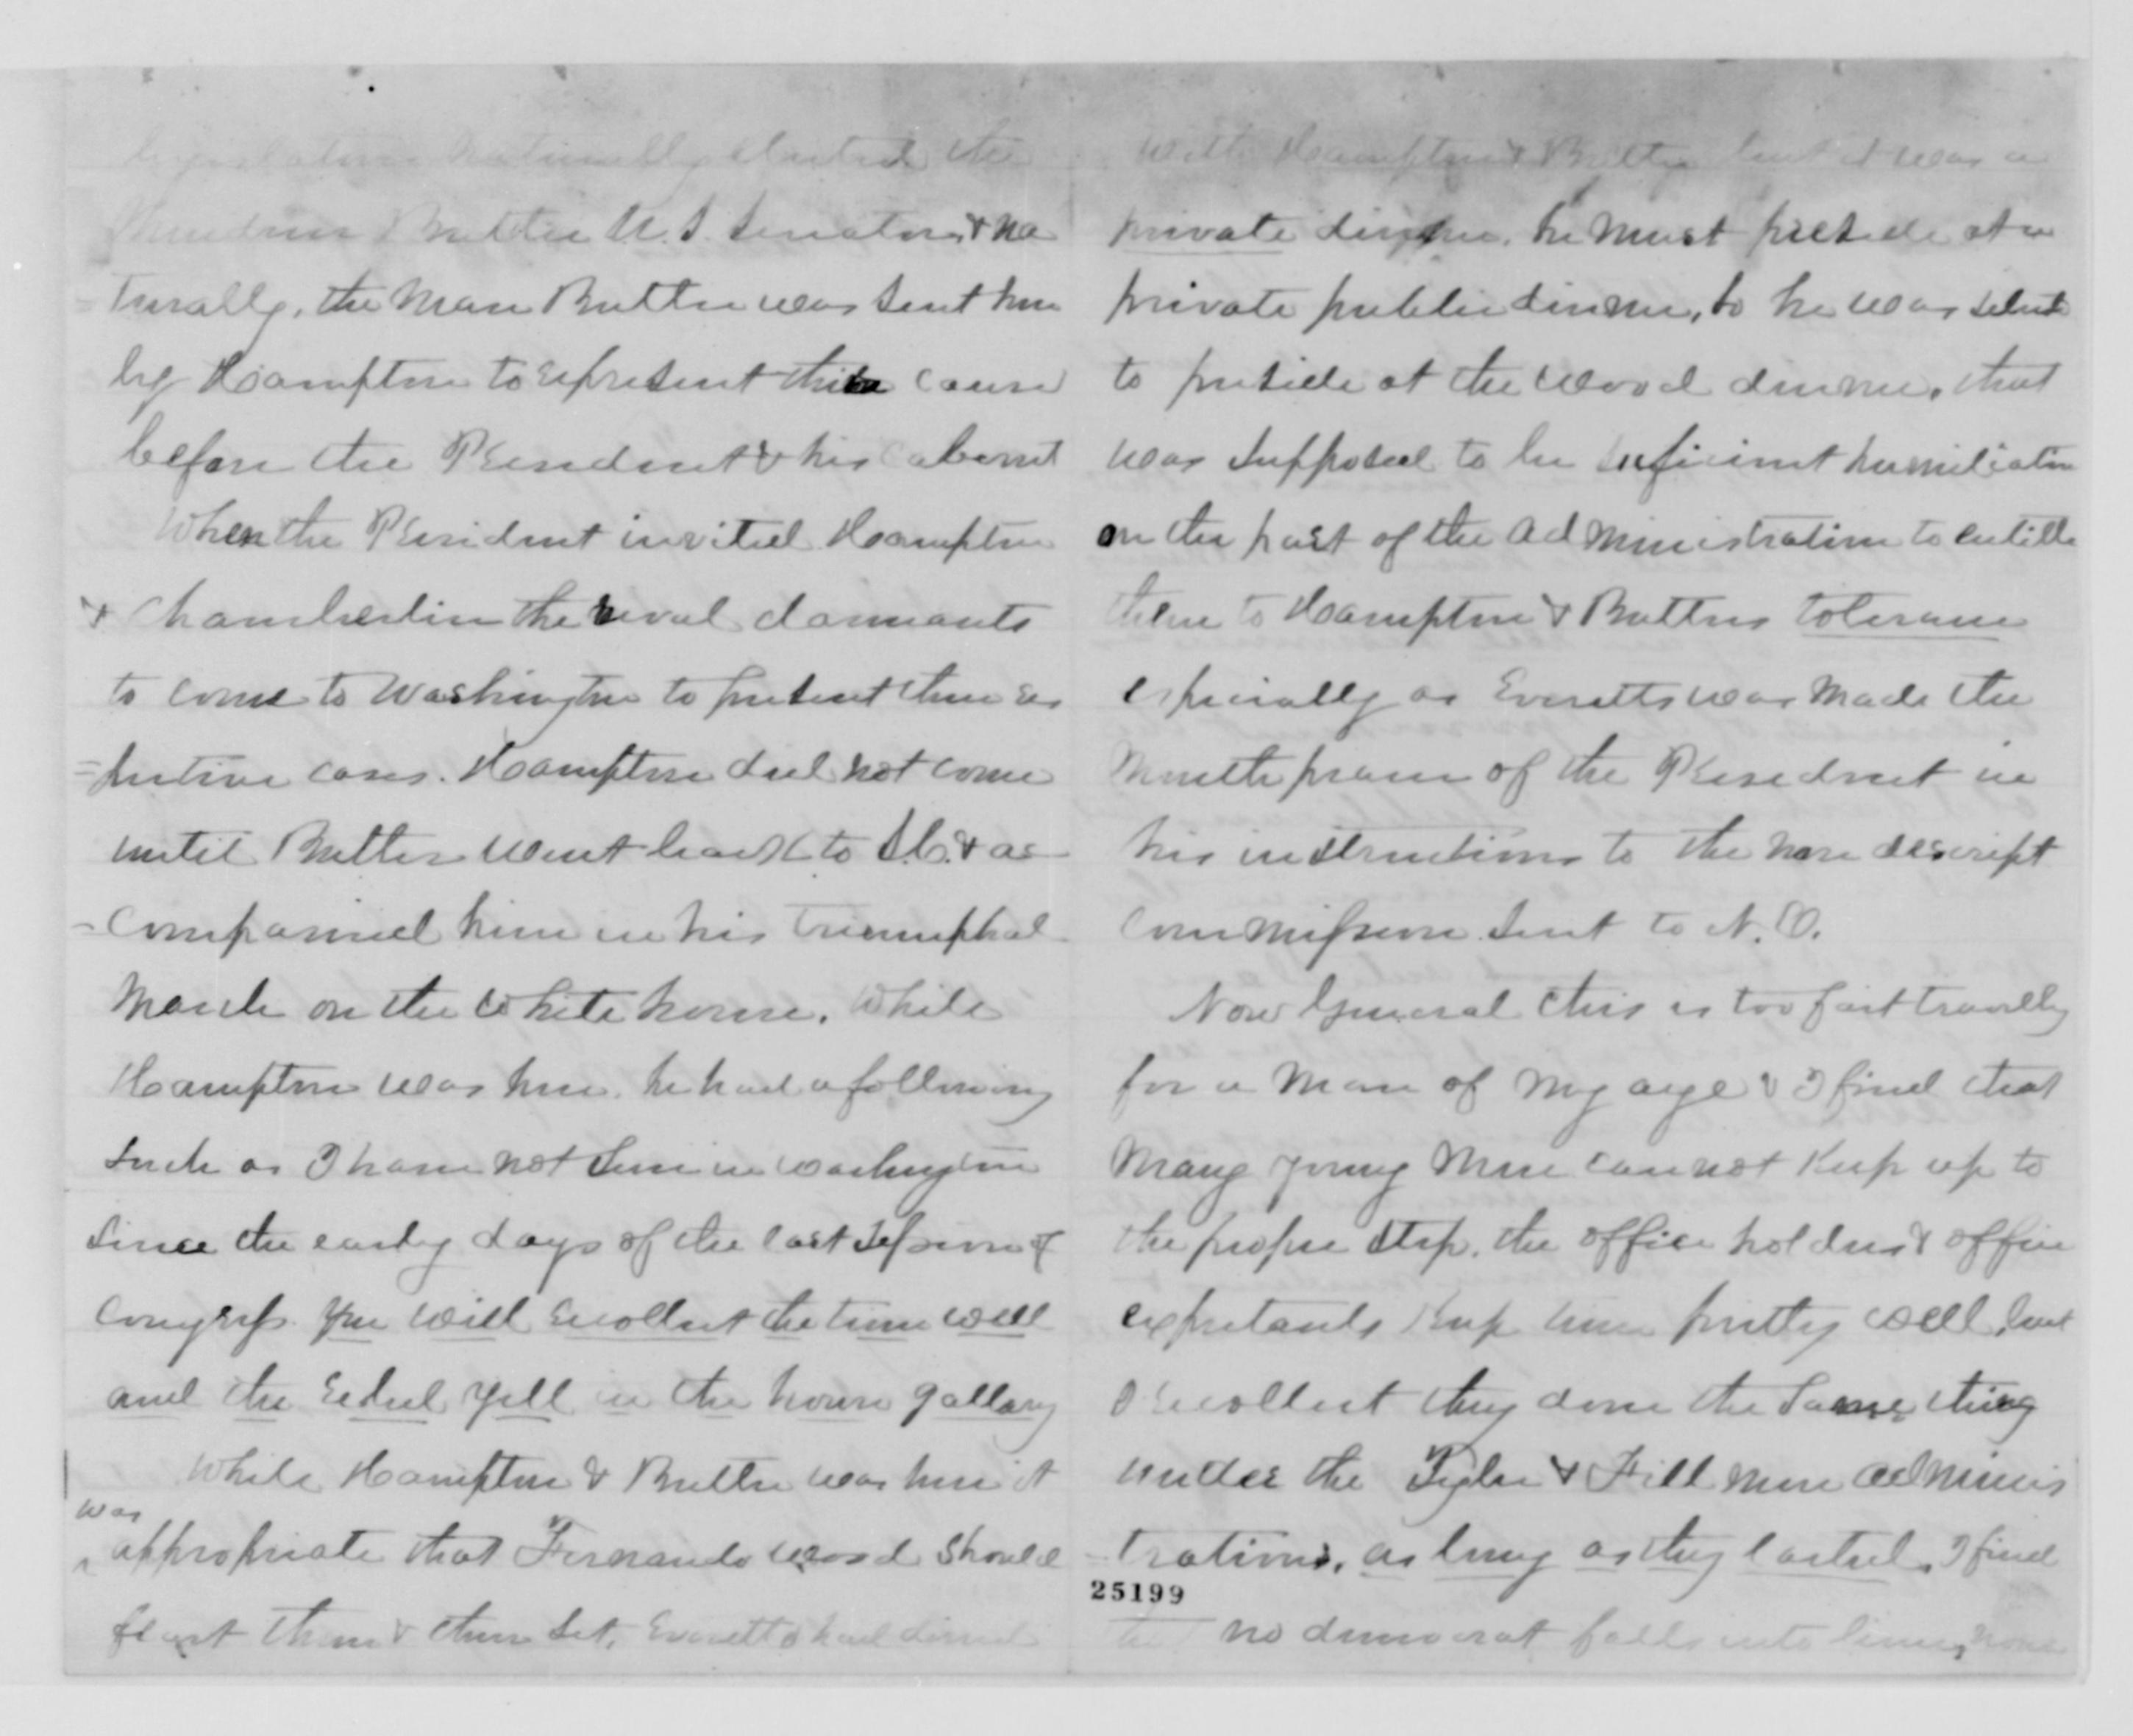 legislature naturally elected the
murderer Buttler U.S. Senator, & na
=turally, the man Buttler was sent here
by Hampton to represent their cause
before the President & his cabinet
When the President invited Hampton
& Chamberlin the rival claimants
to come to Washington to present their res
=pective cases. Hampton did not come
until Buttler went back to S.C. & ac
-companied him in his triumphal
march on the White house. While
Hampton was here, he had a following
such as I have not seen in Washington
since the early days of the last Session of
Congress. you will recollect the time well
and the rebel yell in the house gallary
While Hampton & Buttler was here it
was
appropriate that Fernando Wood should
feast them & their set. Evretts had dined
with Hampton & Buttler but it was a
private dinner, he must preside at a
private public dinner, so he was selected
to preside at the Wood dinner, that
was supposed to be suficient humiliation
on the part of the administration to entitle
them to Hampton & Buttlers tolerance
especially as Evretts was made the
mouth peace of the President in
his instructions to the none descript
Commission sent to N.O.
Now General this is too fast travelling
for a man of my age & I find that
many young men can not keep up to
the proper step. the office holders & office
expectants keep time pretty well, but
I recollect they done the same thing
under the Tyler & Fillmore adminis
=trations, as long as they lasted. I find
25199
that no democrat falls into line, none